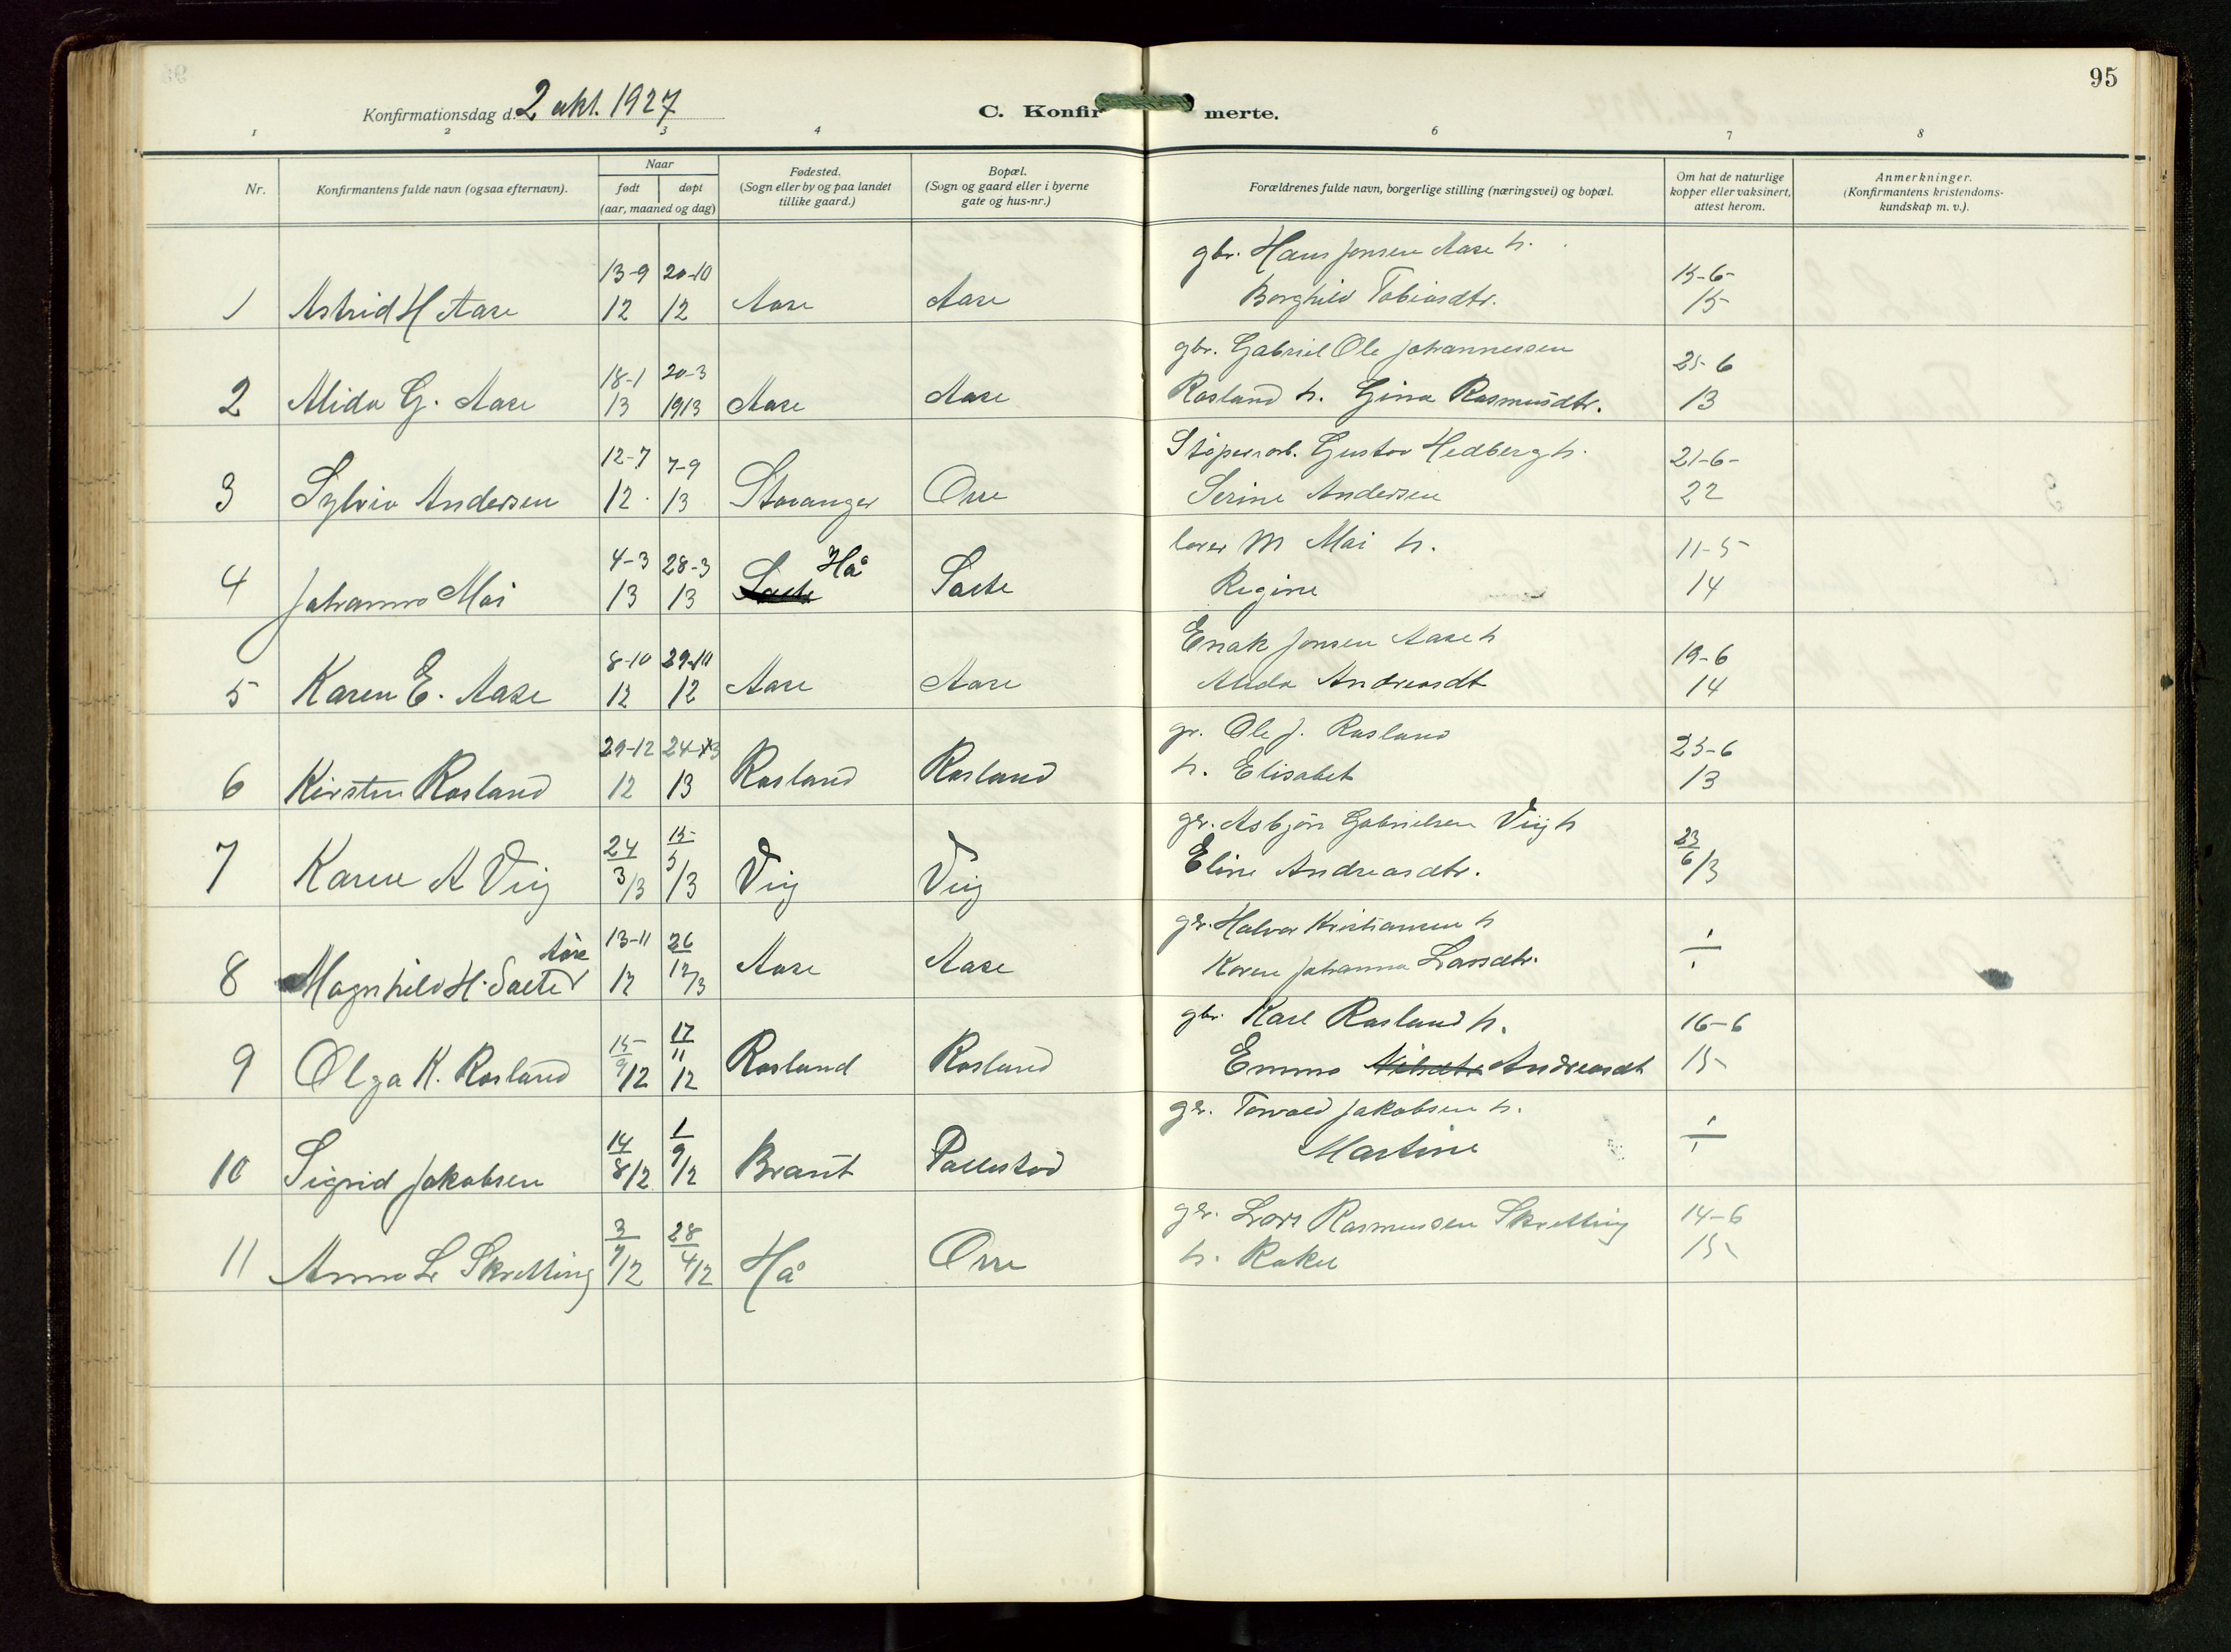 95
Konfirmationsdag d. 2 okt. 1927
C. Konfirmerte.
1 2 3 4 6 7 8
Nr.
Konfirmantens fulde navn (ogsaa efternavn).
Naar
født døpt
(aar, maaned og dag)
Fødested.
(Sogn eller by og paa landet
tillike gaard.)
Bopæl.
(Sogn og gaard eller i byerne
gate og hus-nr.)
Forældrenes fulde navn, borgerlige stilling (næringsvei) og bopæl.
Om hat de naturlige
kopper eller vaksinert,
attest herom.
Anmerkninger.
(Konfirmantens kristendoms-
kundskap m. v.).
13-9 20-10 gbr. Hans Jonsen Aase h. 15-6-
1 Astrid H Aase 12 12 Aase Aase Borghild Tobiasdtr. 15
18-1 20-3 gbr. Gabriel Ole Johannessen 25-6
2 Alida G. Aase 13 1913 Aase Aase Rosland h. Gina Rasmusdtr. 13
12-7 7-9 Støperiarb. Gustav Hedberg h. 21-6-
3 Sylvia Andersen 12 13 Stavanger Orre Serine Andersen 22
4-3 28-3 Hå lærer M Moi h. 11-5
4 Johanna Moi 13 13 Saele Saele Regine 14
8-10 29-10 Enok Jonsen Aase h 19-6
5 Karen E. Aase 12 12 Aase Aase Alida Andreasdt 14
29-12 24-3 gr. Ole J. Rosland 25-6
6 Kirsten Rosland 12 13 Rosland Rosland h. Elisabet 13
7 Karen A Viig 24/3/13 15/5/13 Viig Viig gbr. Asbjørn Gabrielsen Viig h 23/6/13
Eline Andreasdtr.
Aase 13-11 26 gbr. Halvor Kristiansen h
8 Magnhild H. Saeter 12 12/13 Aase Aase Karen Johanna Larsdtr. ÷
9 Olga K. Rosland 15/9/12 17/11/12 Rosland Rosland gbr. Karl Rosland h. 16-6
Emma Andreasdt 15
10 Sigrid Jakobsen 14/8/12 1/9/12 Braut Pollestad gbr. Torvald Jakobsen h. ÷
Martine
11 Anna L Skretting 3/7/12 28/4/12 Hå Orre gbr. Lars Rasmussen Skretting 14-6
h. Rakel 15